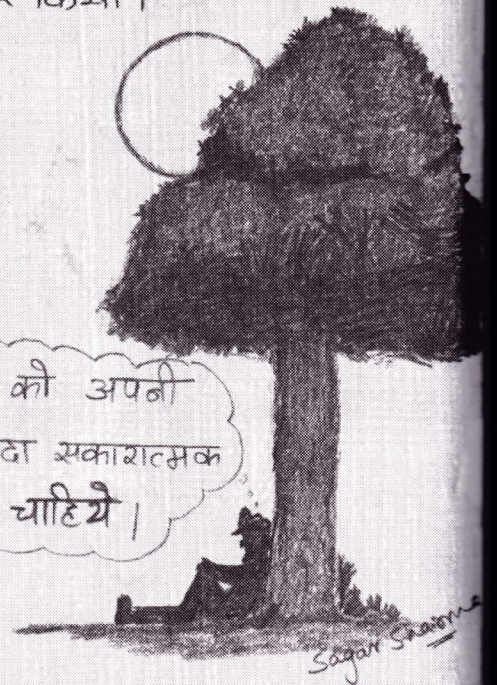 किया।
को अपनी
सकारात्मक
चाहिये।
Sagar Sharma